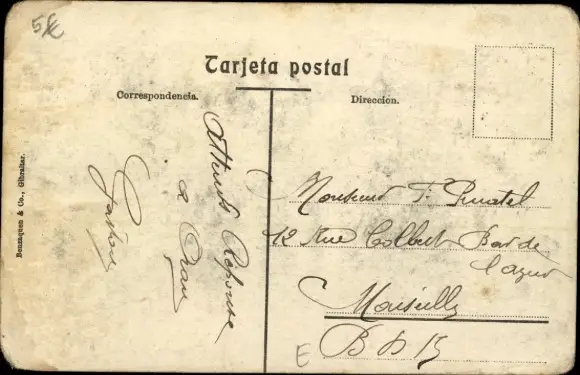 5€
Tarjeta postal
Correspondencia.
Direccion.
Benzaquen & Co., Gibraltar.
Attends Réponse
a Oran
Gaston
Monsieur F.
12 Rue Colbert Bar de
l'azur
Marseille
B D R
E